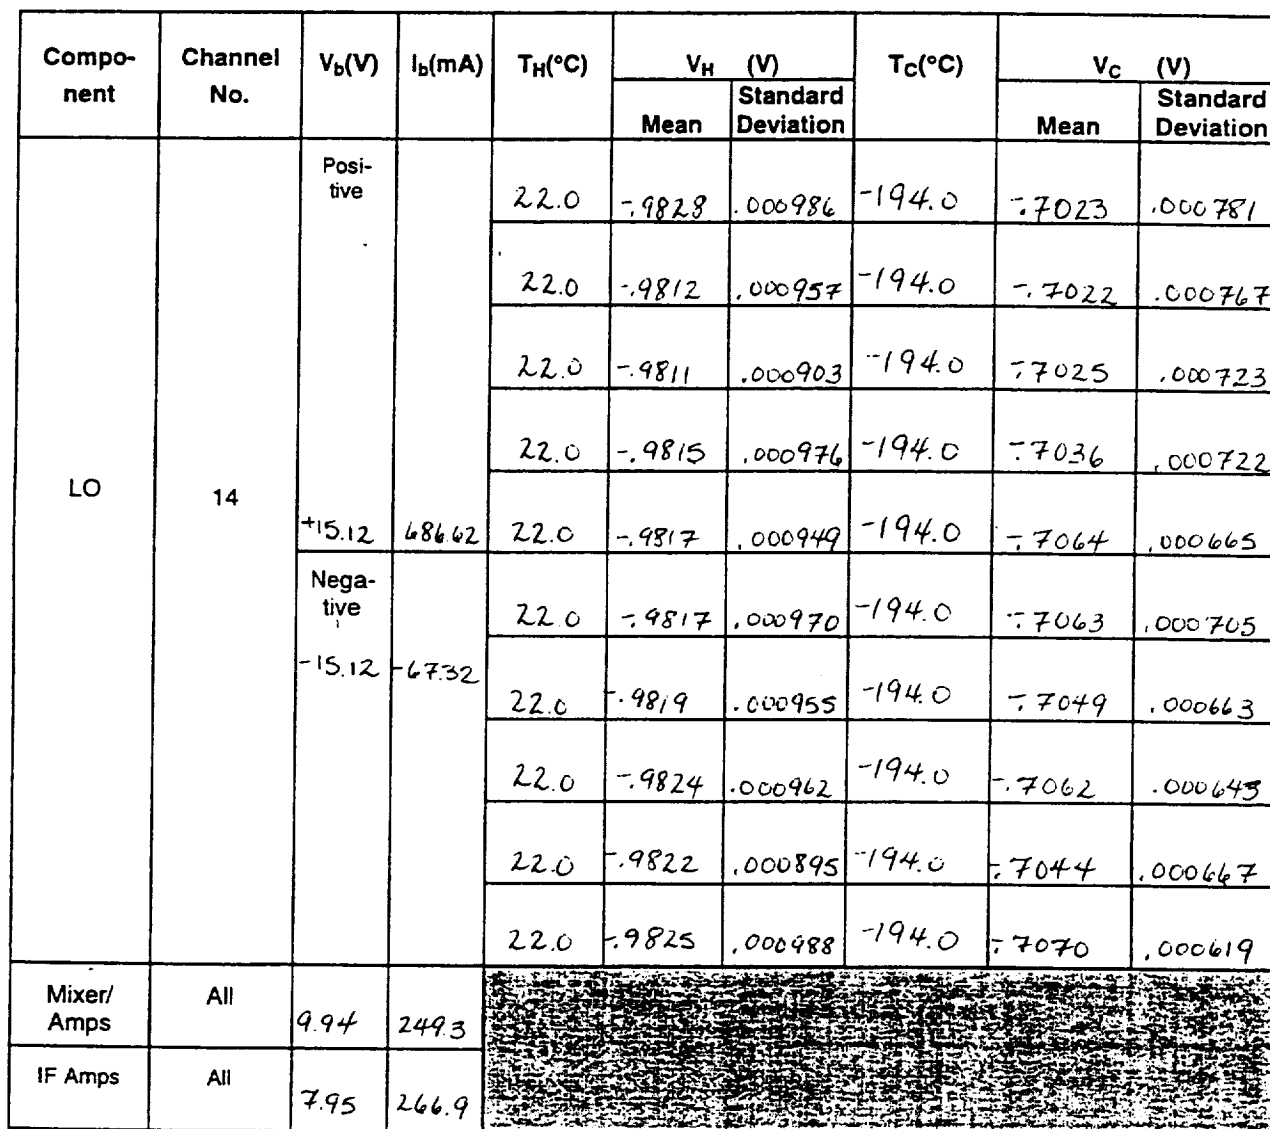 Compo- Channel V_b(V) I_b(mA) T_H(°C) V_H (V) T_C(°C) V_C (V)
nent No. Mean Standard Deviation Mean Standard Deviation
Posi-
tive
22.0 -.9828 .000986 -194.0 -.7023 .000781
22.0 -.9812 .000957 -194.0 -.7022 .000767
22.0 -.9811 .000903 -194.0 -.7025 .000723
22.0 -.9815 .000976 -194.0 -.7036 .000722
LO 14
+15.12 686.62 22.0 -.9817 .000949 -194.0 -.7064 .000665
Nega-
tive
22.0 -.9817 .000970 -194.0 -.7063 .000705
-15.12 -67.32
22.0 -.9819 .000955 -194.0 -.7049 .000663
22.0 -.9824 .000962 -194.0 -.7062 .000643
22.0 -.9822 .000895 -194.0 -.7044 .000667
22.0 -.9825 .000988 -194.0 -.7070 .000619
Mixer/ All
Amps 9.94 249.3
IF Amps All
7.95 266.9